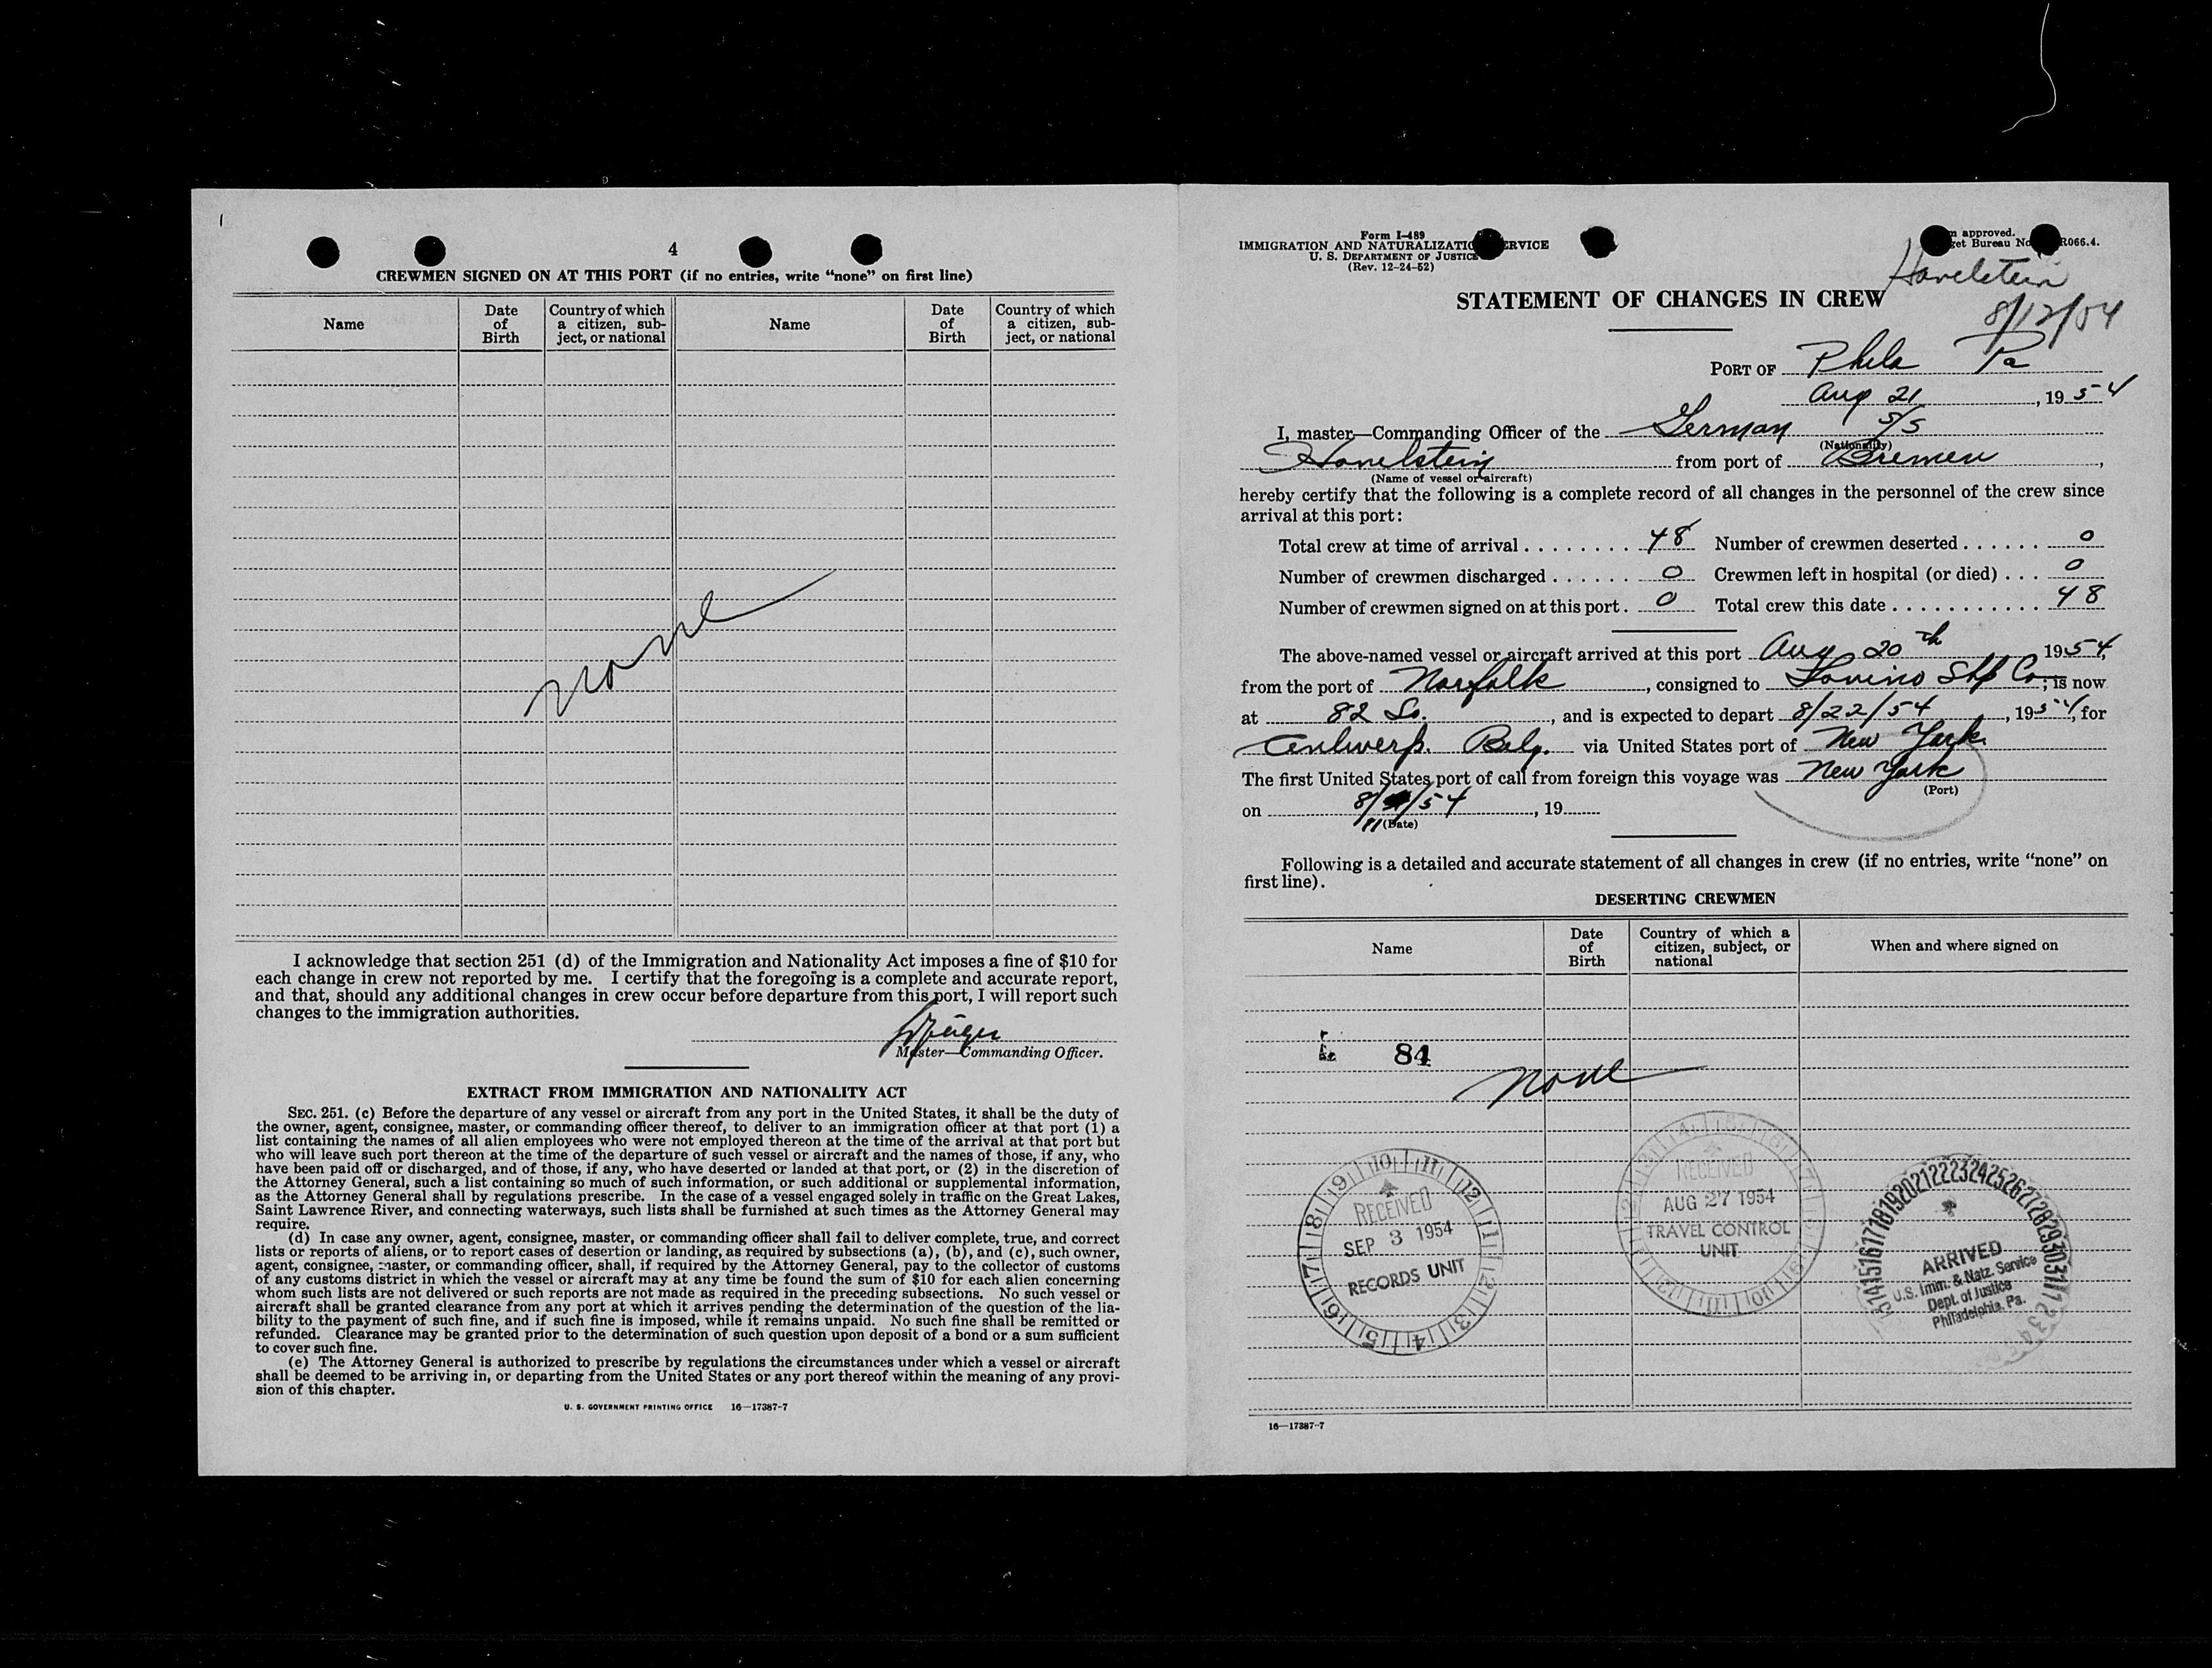 4
CREWMEN SIGNED ON AT THIS PORT (if no entries, write “none” on first line)
Name
Date of Birth
Country of which a citizen, subject, or national
Name
Date of Birth
Country of which a citizen, subject, or national
none
I acknowledge that section 251 (d) of the Immigration and Nationality Act imposes a fine of $10 for
each change in crew not reported by me. I certify that the foregoing is a complete and accurate report,
and that, should any additional changes in crew occur before departure from this port, I will report such
changes to the immigration authorities.
Master—Commanding Officer.
EXTRACT FROM IMMIGRATION AND NATIONALITY ACT
SEC. 251. (c) Before the departure of any vessel or aircraft from any port in the United States, it shall be the duty of
the owner, agent, consignee, master, or commanding officer thereof, to deliver to an immigration officer at that port (1) a
list containing the names of all alien employees who were not employed thereon at the time of the arrival at that port but
who will leave such port thereon at the time of the departure of such vessel or aircraft and the names of those, if any, who
have been paid off or discharged, and of those, if any, who have deserted or landed at that port, or (2) in the discretion of
the Attorney General, such a list containing so much of such information, or such additional or supplemental information,
as the Attorney General shall by regulations prescribe. In the case of a vessel engaged solely in traffic on the Great Lakes,
Saint Lawrence River, and connecting waterways, such lists shall be furnished at such times as the Attorney General may
require.
(d) In case any owner, agent, consignee, master, or commanding officer shall fail to deliver complete, true, and correct
lists or reports of aliens, or to report cases of desertion or landing, as required by subsections (a), (b), and (c), such owner,
agent, consignee, master, or commanding officer, shall, if required by the Attorney General, pay to the collector of customs
of any customs district in which the vessel or aircraft may at any time be found the sum of $10 for each alien concerning
whom such lists are not delivered or such reports are not made as required in the preceding subsections. No such vessel or
aircraft shall be granted clearance from any port at which it arrives pending the determination of the question of the lia-
bility to the payment of such fine, and if such fine is imposed, while it remains unpaid. No such fine shall be remitted or
refunded. Clearance may be granted prior to the determination of such question upon deposit of a bond or a sum sufficient
to cover such fine.
(e) The Attorney General is authorized to prescribe by regulations the circumstances under which a vessel or aircraft
shall be deemed to be arriving in, or departing from the United States or any port thereof within the meaning of any provi-
sion of this chapter.
U. S. GOVERNMENT PRINTING OFFICE 16—17387-7
Form I-489
IMMIGRATION AND NATURALIZATIO RVICE
U. S. DEPARTMENT OF JUSTICE
(Rev. 12-24-52)
approved.
et Bureau No R066.4.
Havelstein
8/12/54
STATEMENT OF CHANGES IN CREW
PORT OF Phila Pa
Aug 21, 1954
I, master—Commanding Officer of the German S/S
(Nationality)
Havelstein from port of Bremen,
(Name of vessel or aircraft)
hereby certify that the following is a complete record of all changes in the personnel of the crew since
arrival at this port:
Total crew at time of arrival . . . . . . . . 48 Number of crewmen deserted . . . . . . 0
Number of crewmen discharged . . . . . . 0 Crewmen left in hospital (or died) . . . 0
Number of crewmen signed on at this port . 0 Total crew this date . . . . . . . . . . . . 48
The above-named vessel or aircraft arrived at this port Aug 20th 1954,
from the port of Norfolk, consigned to Lavino Shp Co; is now
at 82 So., and is expected to depart 8/22/54, 1954, for
Antwerp. Belg. via United States port of New York
The first United States port of call from foreign this voyage was New York
(Port)
on 8/ /54, 19
11 (Date)
Following is a detailed and accurate statement of all changes in crew (if no entries, write “none” on
first line).
DESERTING CREWMEN
Name
Date of Birth
Country of which a citizen, subject, or national
When and where signed on
84
none
RECEIVED
SEP 3 1954
RECORDS UNIT
RECEIVED
AUG 27 1954
TRAVEL CONTROL
UNIT
ARRIVED
U.S. Imm. & Natz. Service
Dept. of Justice
Philadelphia, Pa.
16—17387-7